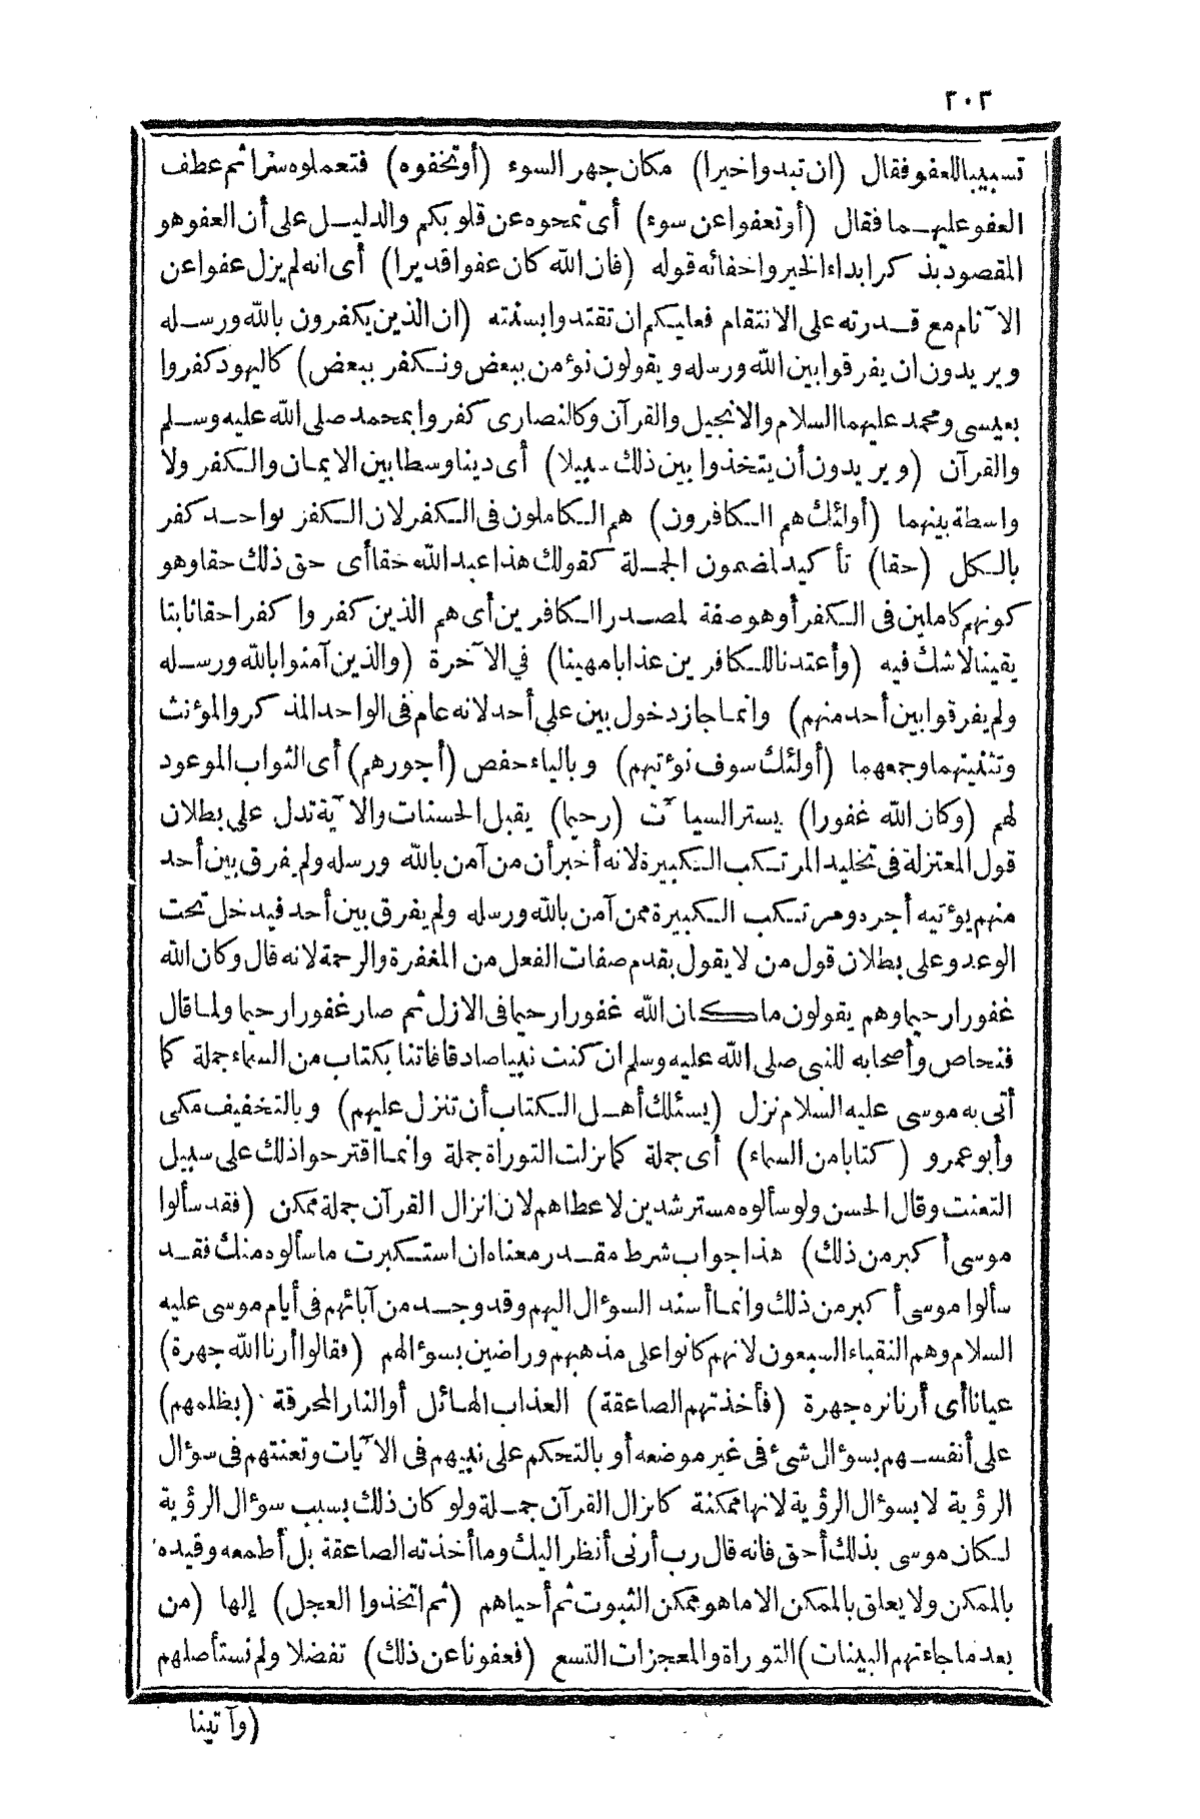 ٢٠٣
تسبيبا للعفو فقال (ان تبدوا خيرا) مكان جهر السوء (أو تخفوه) فتعملوه سرا ثم عطف
العفو عليهما فقال (أو تعفوا عن سوء) أى تمحوه عن قلوبكم والدليل على أن العفو هو
المقصود بذكر ابداء الخير واخفائه قوله (فان الله كان عفوا قديرا) أى انه لم يزل عفوا عن
الآثام مع قدرته على الانتقام فعليكم ان تقتدوا بسنته (ان الذين يكفرون بالله ورسله
ويريدون ان يفرقوا بين الله ورسله ويقولون نؤمن ببعض ونكفر ببعض) كاليهود كفروا
بعيسى ومحمد عليهما السلام والانجيل والقرآن وكالنصارى كفروا بمحمد صلى الله عليه وسلم
والقرآن (ويريدون أن يتخذوا بين ذلك سبيلا) أى دينا وسطا بين الايمان والكفر ولا
واسطة بينهما (أولئك هم الكافرون) هم الكاملون فى الكفر لان الكفر بواحد كفر
بالكل (حقا) تأكيد لمضمون الجملة كقولك هذا عبد الله حقا أى حق ذلك حقا وهو
كونهم كاملين فى الكفر أو هو صفة لمصدر الكافرين أى هم الذين كفروا كفرا حقا ثابتا
يقينا لا شك فيه (وأعتدنا للكافرين عذابا مهينا) في الآخرة (والذين آمنوا بالله ورسله
ولم يفرقوا بين أحد منهم) وانما جاز دخول بين على أحد لانه عام فى الواحد المذكر والمؤنث
وتثنيتهما وجمعهما (أولئك سوف نؤتيهم) وبالياء حفص (أجورهم) أى الثواب الموعود
لهم (وكان الله غفورا) يستر السيآت (رحيما) يقبل الحسنات والآية تدل على بطلان
قول المعتزلة فى تخليد المرتكب الكبيرة لانه أخبر أن من آمن بالله ورسله ولم يفرق بين أحد
منهم يؤتيه أجره ومرتكب الكبيرة ممن آمن بالله ورسله ولم يفرق بين أحد فيدخل تحت
الوعد وعلى بطلان قول من لا يقول بقدم صفات الفعل من المغفرة والرحمة لانه قال وكان الله
غفورا رحيما وهم يقولون ما كان الله غفورا رحيما فى الازل ثم صار غفورا رحيما ولما قال
فنحاص وأصحابه للنبى صلى الله عليه وسلم ان كنت نبيا صادقا فاتنا بكتاب من السماء جملة كما
أتى به موسى عليه السلام نزل (يسئلك أهل الكتاب أن تنزل عليهم) وبالتخفيف مكى
وأبو عمرو (كتابا من السماء) أى جملة كما نزلت التوراة جملة وانما اقترحوا ذلك على سبيل
التعنت وقال الحسن ولو سألوه مسترشدين لاعطاهم لان انزال القرآن جملة ممكن (فقد سألوا
موسى أكبر من ذلك) هذا جواب شرط مقدر معناه ان استكبرت ما سألوه منك فقد
سألوا موسى أكبر من ذلك وانما أسند السؤال اليهم وقد وجد من آبائهم فى أيام موسى عليه
السلام وهم النقباء السبعون لانهم كانوا على مذهبهم وراضين بسؤالهم (فقالوا أرنا الله جهرة)
عيانا أى أرنا نره جهرة (فأخذتهم الصاعقة) العذاب الهائل أو النار المحرقة (بظلمهم)
على أنفسهم بسؤال شئ فى غير موضعه أو بالتحكم على نبيهم فى الآيات وتعنتهم فى سؤال
الرؤية لا بسؤال الرؤية لانها ممكنة كانزال القرآن جملة ولو كان ذلك بسبب سؤال الرؤية
لكان موسى بذلك أحق فانه قال رب أرنى أنظر اليك وما أخذته الصاعقة بل أطمعه وقيده
بالممكن ولا يعلق بالممكن الا ما هو ممكن الثبوت ثم أحياهم (ثم اتخذوا العجل) إلها (من
بعد ما جاءتهم البينات) التوراة والمعجزات التسع (فعفونا عن ذلك) تفضلا ولم نستأصلهم
(وآتينا